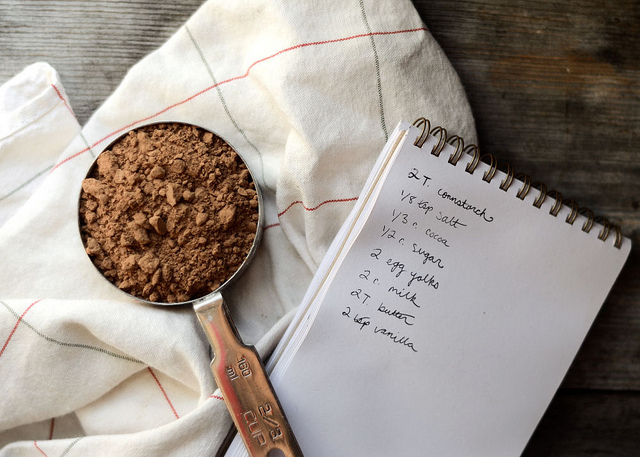 2 T. cornstarch
1/8 tsp salt
1/3 c. cocoa
1/2 c. sugar
2 egg yolks
2 c. milk
2 T. butter
2 tsp vanilla
160 ml
2/3 CUP